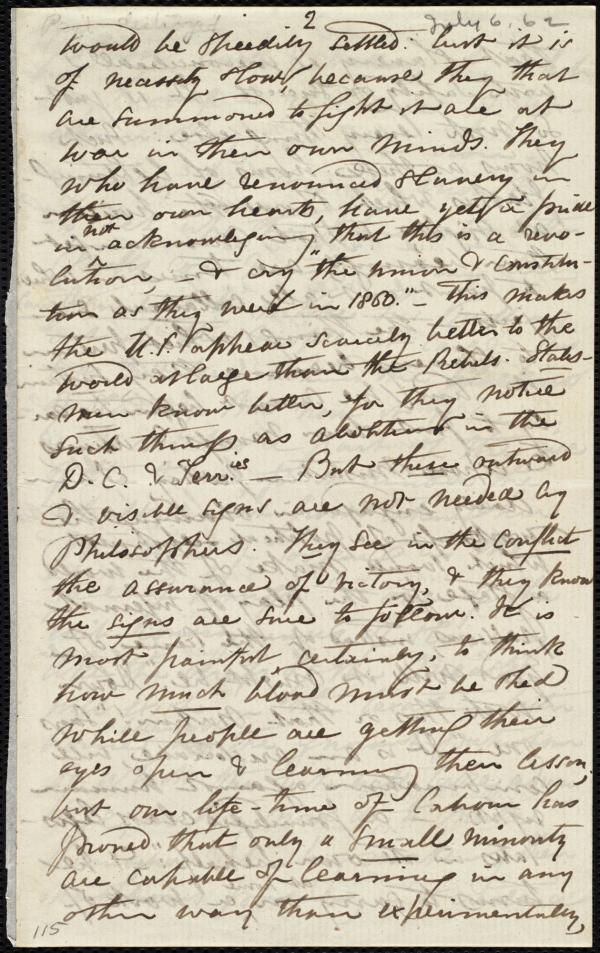 2
July 6. 62
would be speedily settled: but it is
of necessity slow, because they that
are summoned to fight it are at
war in their own minds. They
who have renounced slavery in
their own hearts, have yet a pride
in not acknowledging that this is a revo-
lution, - & cry "the union & constitu-
tion as they were in 1860." - This makes
the U.S. appear scarcely better to the
world at large than the Rebels. States-
men know better, for they notice
such things as abolition in the
D.C. & Terr.ies - But these outward
& visible signs are not needed by
Philosophers. They see in the conflict
the assurance of victory, & they know
the signs are sure to follow. It is
most painful, certainly, to think
how much blood must be shed
while people are getting their
eyes open & learning their lesson,
but our life-time of labour has
proved that only a small minority
are capable of learning in any
other way than experimentally,
115